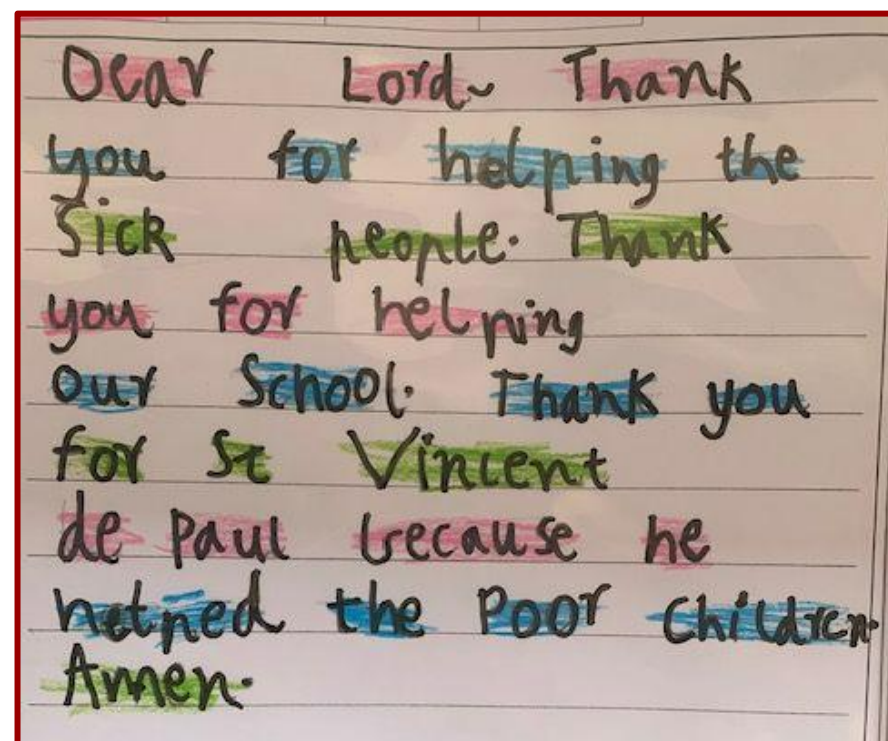 Dear Lord~ Thank
you for helping the
Sick people. Thank
you for helping
our School. Thank you
for St Vincent
de Paul because he
helped the Poor Children.
Amen.